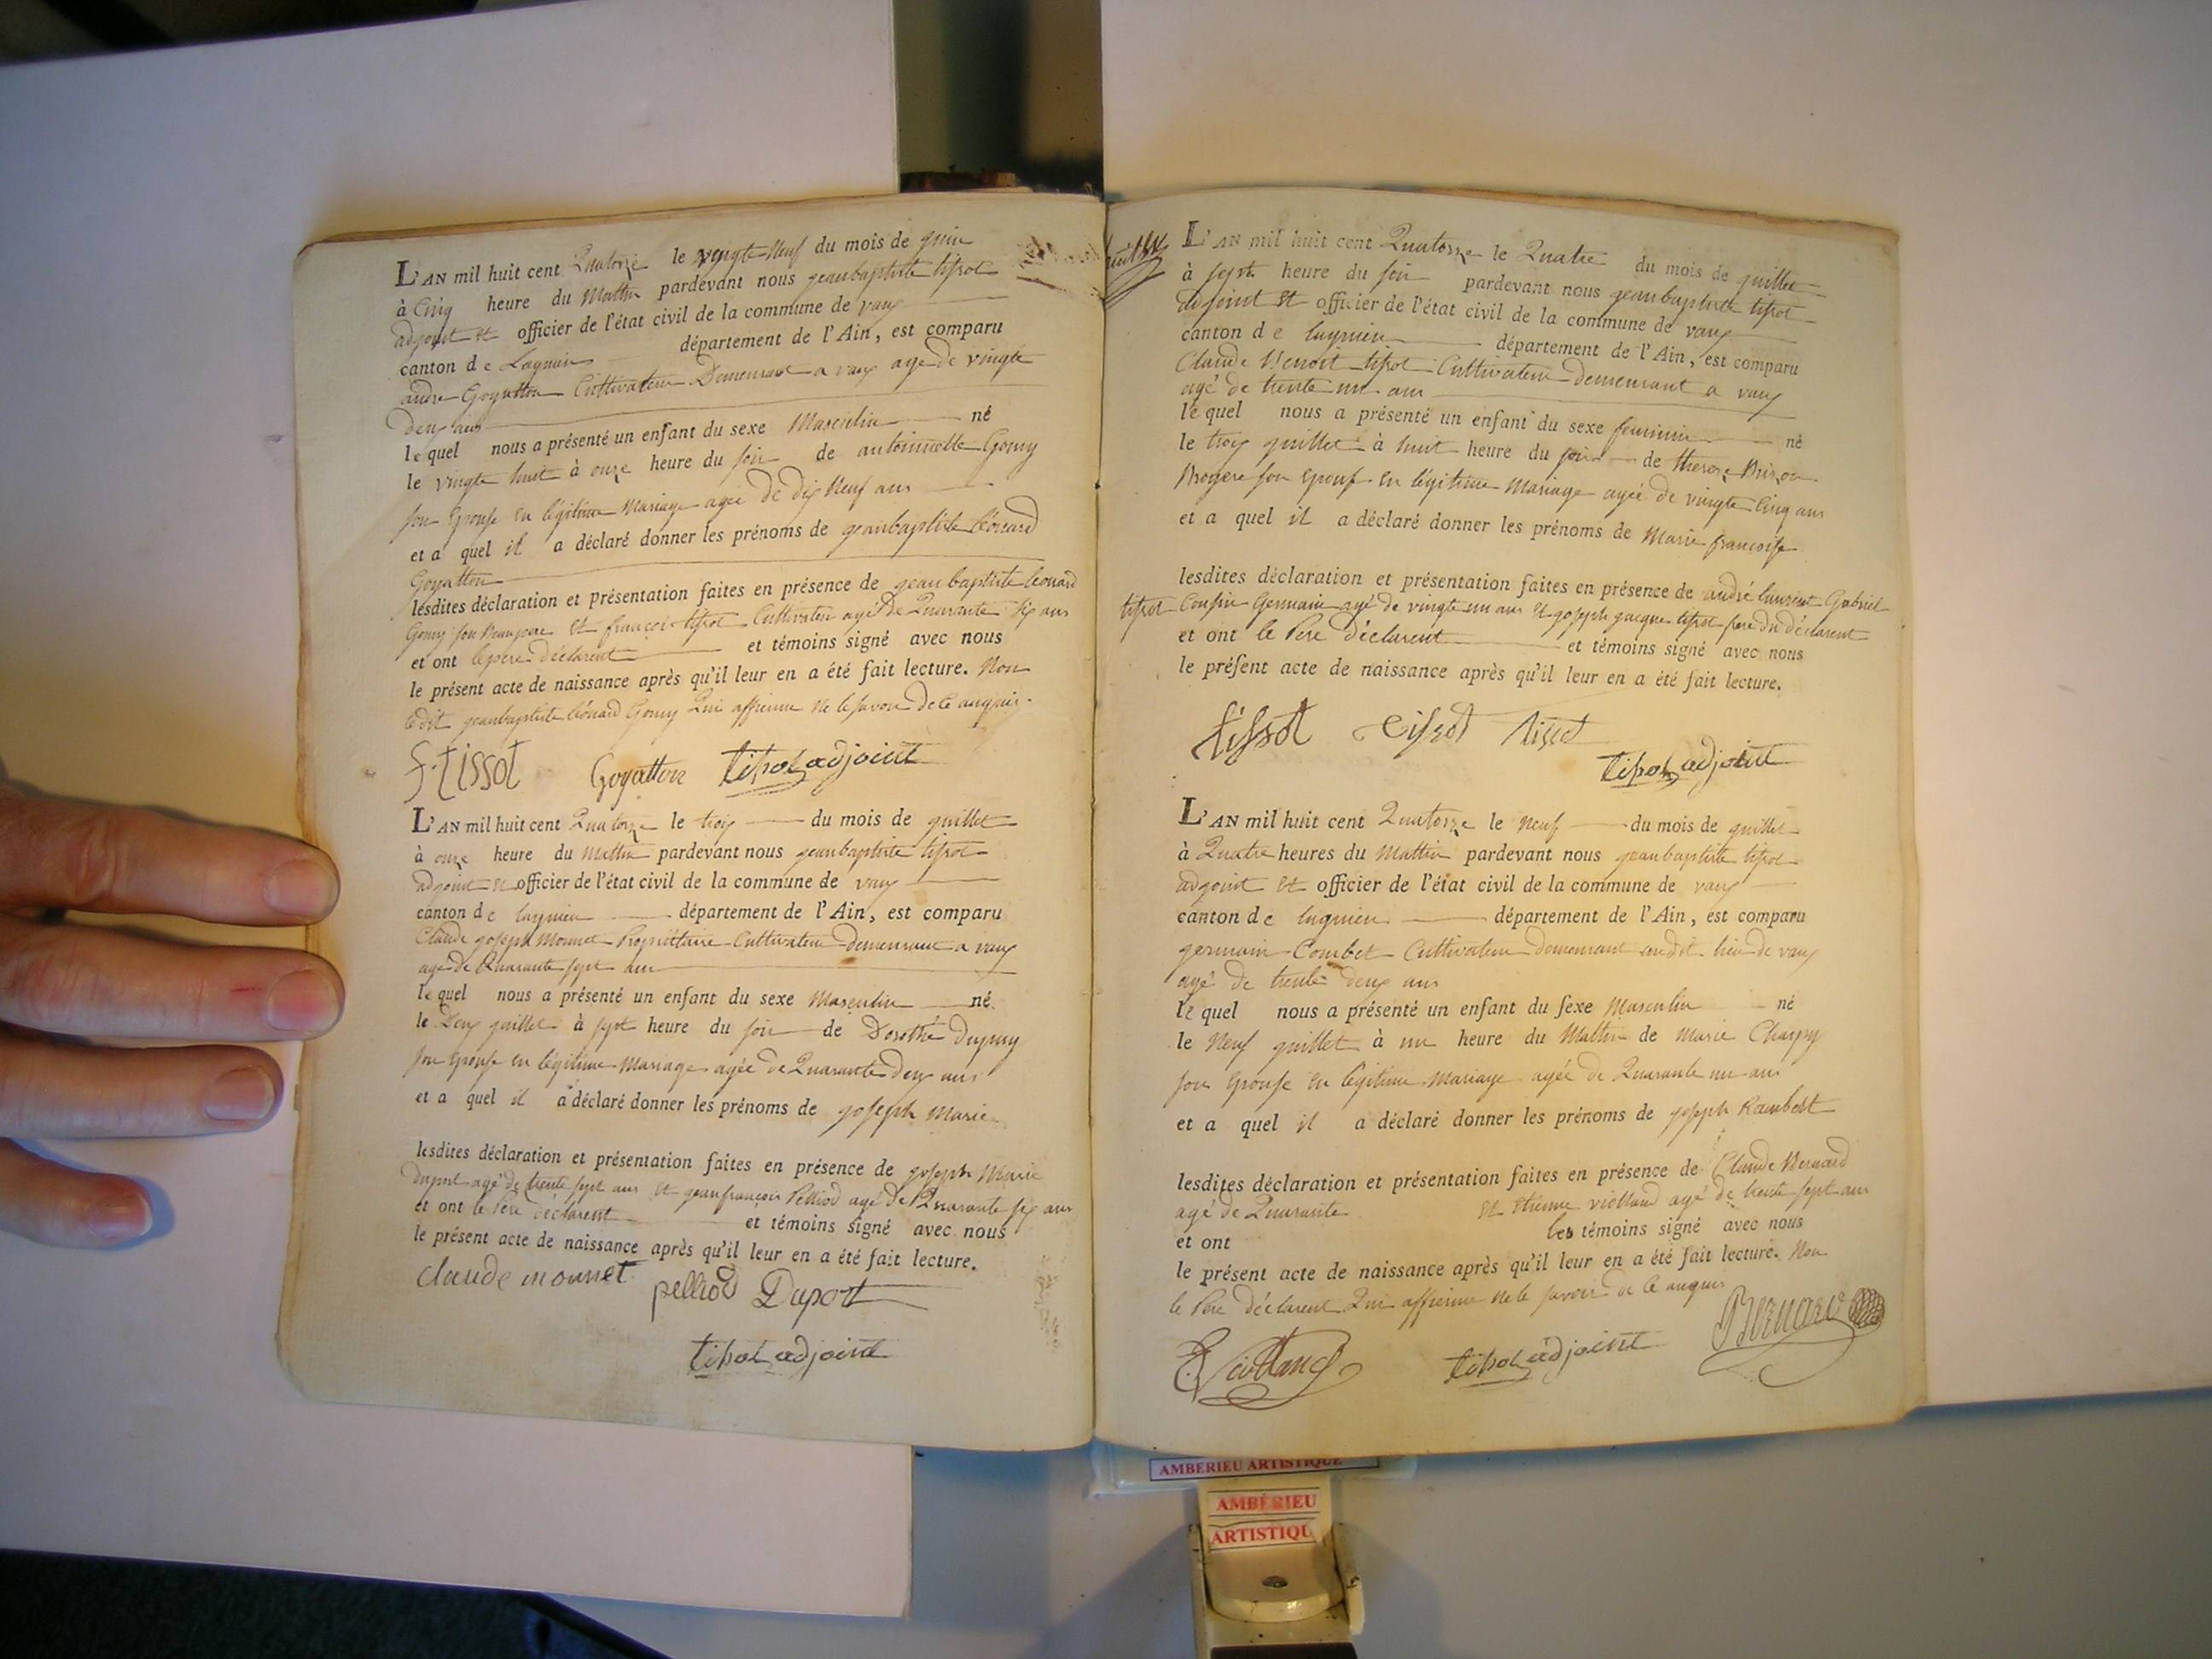 L'AN mil huit cent Quatorze le vingte Neuf du mois de guin
à Cinq heure du Mattin pardevant nous geanbaptiste tissot
adgoint et officier de l'état civil de la commune de vaux
canton de Lagnieu département de l'Ain, est comparu
andre Goyatton Cultivateur Demeurant a vaux age de vingte
deux ans
lequel nous a présenté un enfant du sexe Masculin né
le vingte huit à onze heure du soir de antoinette Gomy
son Epouse en légitime Mariage agée de dix Neuf ans
et a quel il a déclaré donner les prénoms de geanbaptiste léonard
Goyatton
lesdites déclaration et présentation faites en présence de geanbaptiste léonard
Gomy son Beaupere et françois tissot Cultivateur agé de Quarante six ans
et ont le pere déclarent et témoins signé avec nous
le présent acte de naissance après qu'il leur en a été fait lecture. Non
ledit geanbaptiste léonard Gomy Qui affirme ne le savoir de ce anquis.
f. tissot Goyatton tissot adjoint
L'AN mil huit cent Quatorze le trois du mois de guillet
à onze heure du Mattin pardevant nous geanbaptiste tissot
adgoint et officier de l'état civil de la commune de vaux
canton de lagnieu département de l'Ain, est comparu
Claude goseph Monnet Propriétaire Cultivateur demeurant a vaux
age de Quarante sept ans
lequel nous a présenté un enfant du sexe Masculin né
le Deux guillet à sept heure du soir de Dorothé Dupuy
son Epouse en légitime Mariage agée de Quarante deux ans
et a quel il a déclaré donner les prénoms de goseph Marie
lesdites déclaration et présentation faites en présence de goseph Marie
Duport agé de trente sept ans et geanfrancois Pelliod agé de Quarante six ans
et ont le Pere déclarent et témoins signé avec nous
le présent acte de naissance après qu'il leur en a été fait lecture.
claude monnet pelliod Duport
tissot adjoint
L'AN mil huit cent Quatorze le Quatre du mois de guillet
à sept heure du soir pardevant nous geanbaptiste tissot
adgoint et officier de l'état civil de la commune de vaux
canton de lagnieu département de l'Ain, est comparu
Claude Benoit tissot Cultivateur demeurant a vaux
agé de trente un ans
lequel nous a présenté un enfant du sexe feminin né
le trois guillet à huit heure du soir de therese
son Epouse en légitime Mariage agée de vingte Cinq ans
et a quel il a déclaré donner les prénoms de Marie francoise
lesdites déclaration et présentation faites en présence de andré laurent Gabriel
tissot Cousin Germain agé de vingte un ans et goseph gacque tissot frere du déclarent
et ont le Pere déclarent et témoins signé avec nous
le présent acte de naissance après qu'il leur en a été fait lecture.
tissot tissot tissot
tissot adjoint
L'AN mil huit cent Quatorze le Neuf du mois de guillet
à Quatre heures du Mattin pardevant nous geanbaptiste tissot
adgoint et officier de l'état civil de la commune de vaux
canton de lagnieu département de l'Ain, est comparu
germain Combet Cultivateur demeurant audit lieu de vaux
agé de trente deux ans
lequel nous a présenté un enfant du sexe Masculin né
le Neuf guillet à un heure du Mattin de Marie Charpy
son Epouse en légitime Mariage agée de Quarante un ans
et a quel il a déclaré donner les prénoms de goseph Rambert
lesdites déclaration et présentation faites en présence de Claude Bernard
agé de Quarante et Etienne violland agé de trente sept ans
et ont les témoins signé avec nous
le présent acte de naissance après qu'il leur en a été fait lecture. Non
le Pere déclarent Qui affirme ne le savoir de ce anquis
E. Violland tissot adjoint Bernard
AMBERIEU ARTISTIQUE
AMBÉRIEU
ARTISTIQU